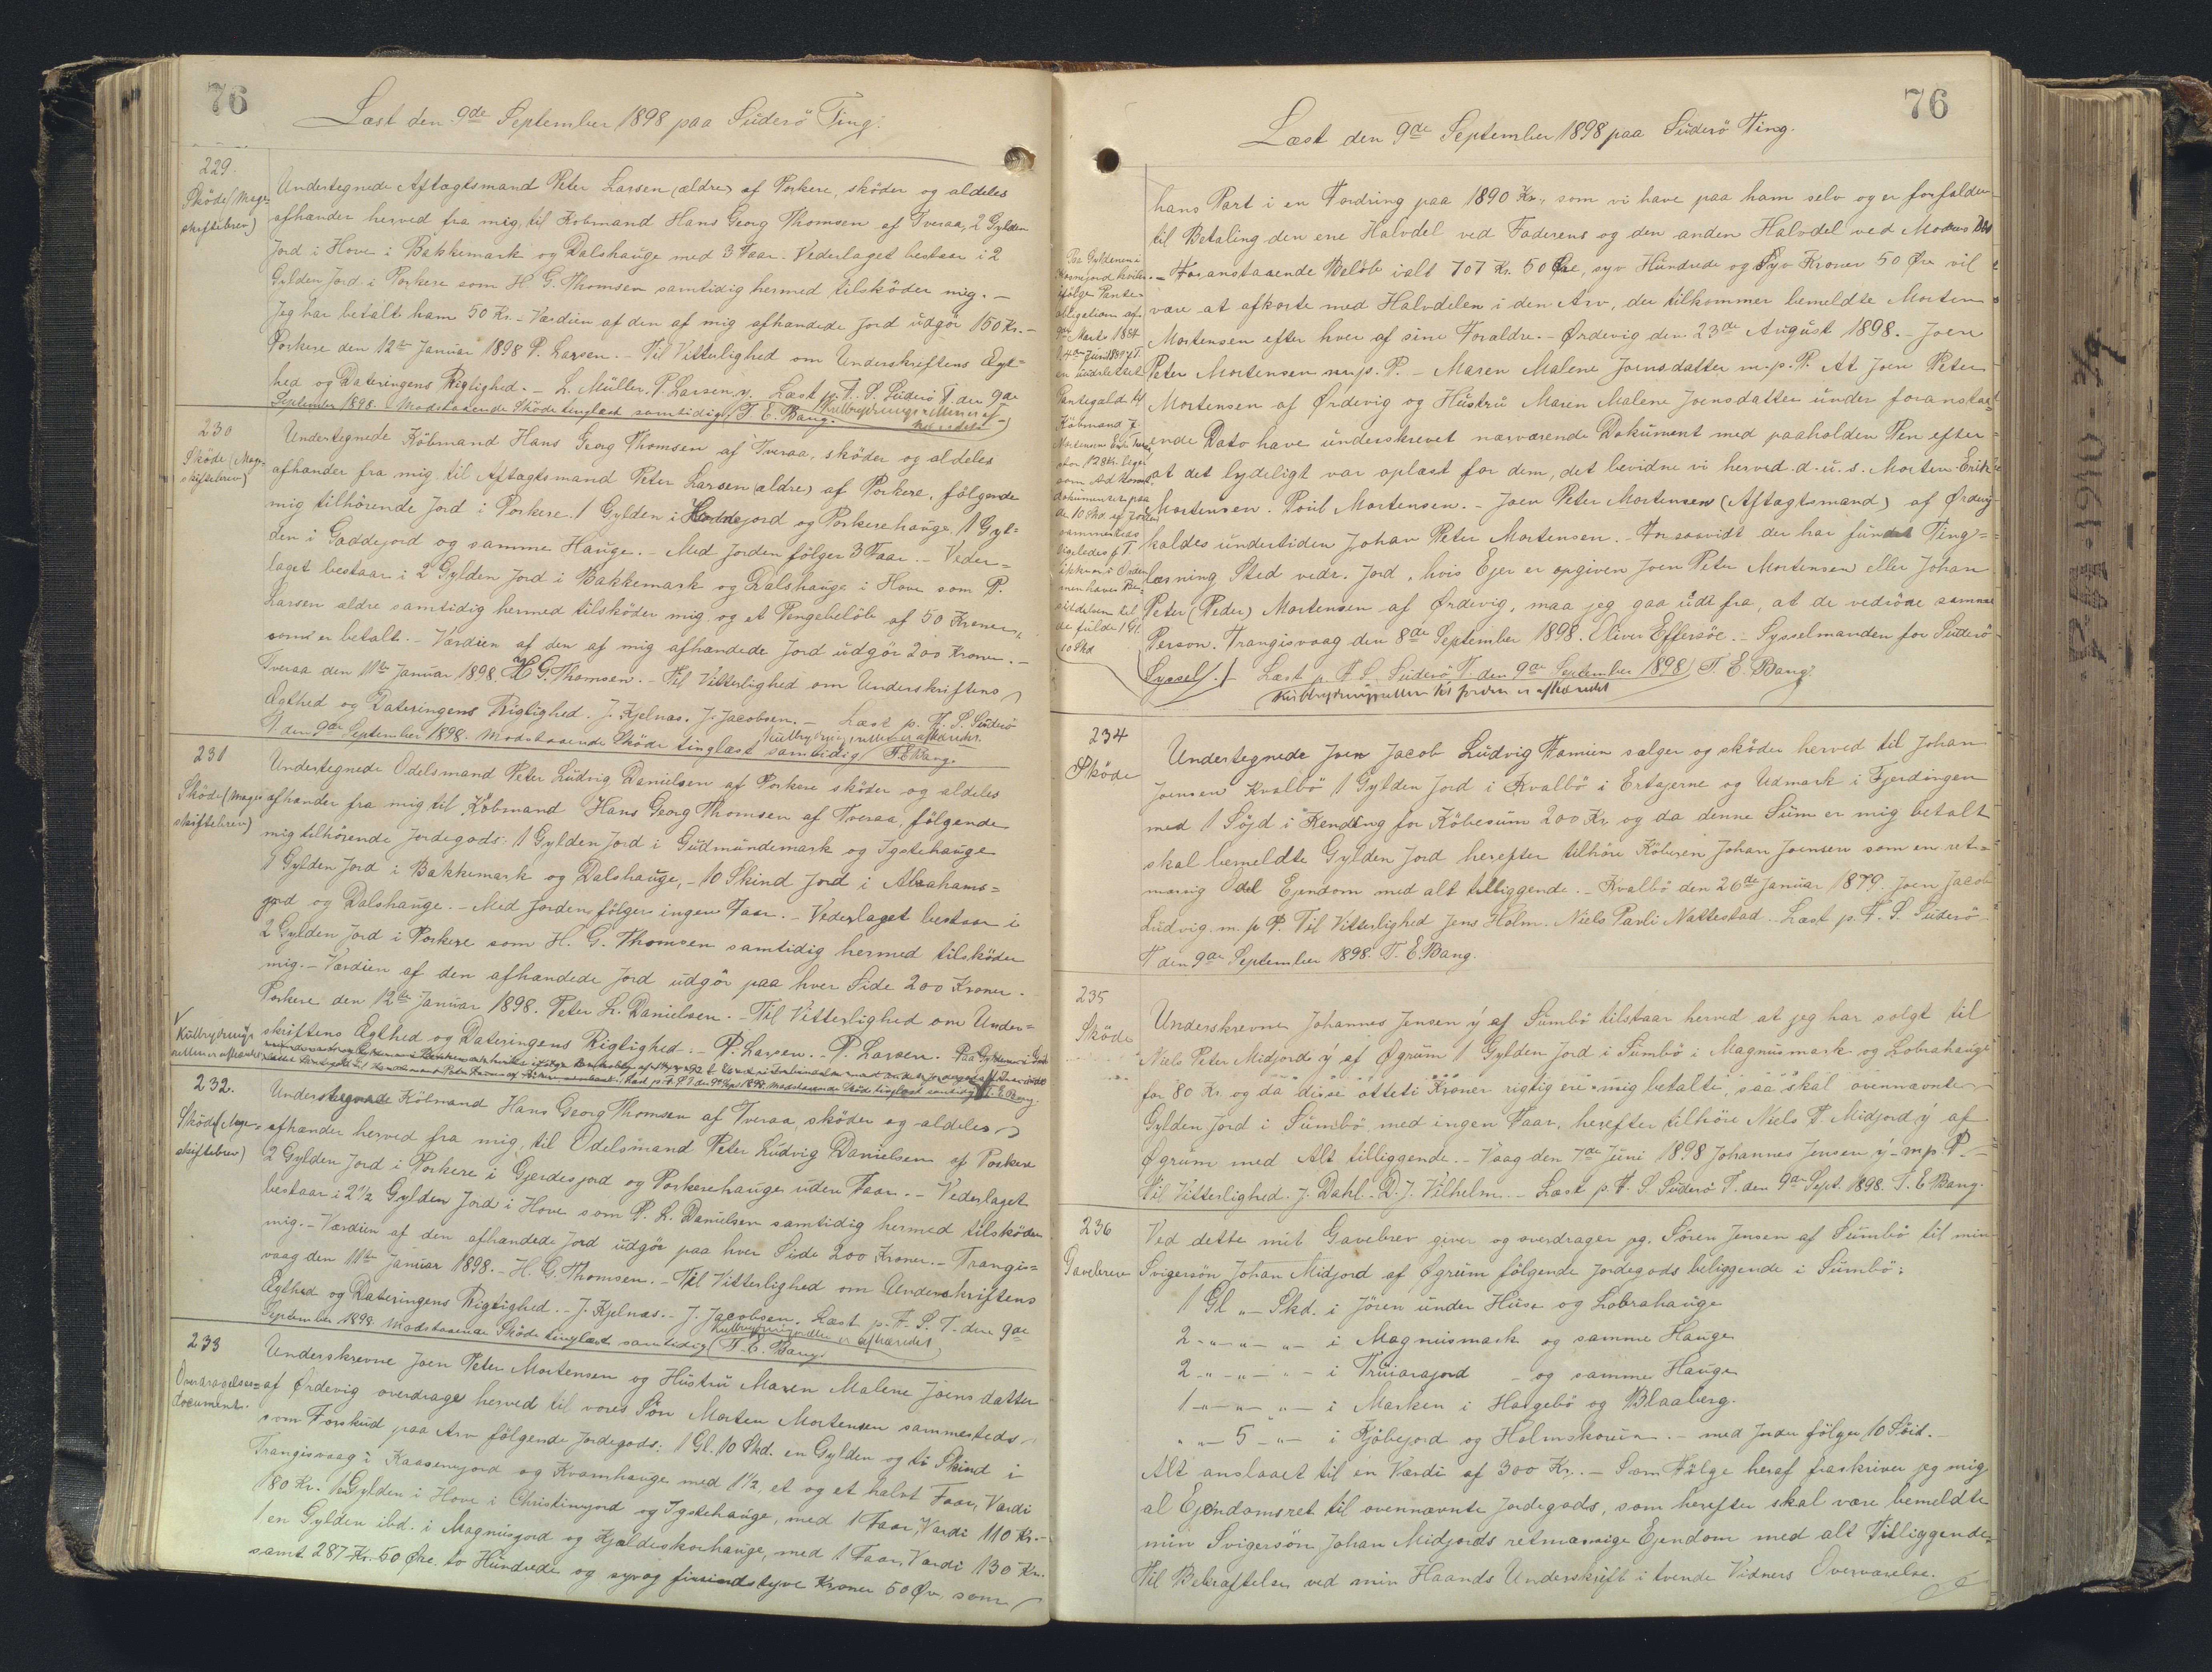 76
Læst den 9de September 1898 paa Suderö Ting.
229.
Sköde (Mage-
skiftebrev)
Undertegnede Aftagtsmand Peter Larsen (ældre) af Porkere, sköder og aldeles
afhænder herved fra mig, til Kobmand Hans Georg Thomsen af Tveraa, 2 Gylden
Jord i Hove i Bakkemark og Dalshauge med 3 Faar. Vederlaget bestaar i 2
Gylden Jord i Porkere som H. G. Thomsen samtidig hermed tilsköder mig. –
Jeg har betalt ham 50 Kr. – Værdien af den af mig afhændede Jord udgör 150 Kr. –
Porkere den 12te Januar 1898 P. Larsen. – Til Vitterlighed om Underskriftens Ægt=
hed og Dateringens Rigtighed. – L. Müller. P. Larsen y. Læst p. F. S. Suderö T. den 9de
September 1898. Modstaaende Sköde tinglæst samtidig (T. E. Bang.
230
Sköde (Mage-
skiftebrev)
Undertegnede Köbmand Hans Georg Thomsen af Tveraa, sköder og aldeles
afhænder fra mig til Aftagtsmand Peter Larsen (ældre) af Porkere, följgende
mig tilhörende Jord i Porkere. 1 Gylden i jord og Porkerehauge, 1 Gyl=
den i Gaddejord og samme Hauge. – Med Jorden fölger 3 Faar. – Veder=
laget bestaar i 2 Gylden Jord i Bakkemark og Dalshauge i Hove som P.
Larsen ældre samtidig hermed tilsköder mig og et Pengebelöb af 50 Kroner,
som er betalt. – Værdien af den af mig afhændede Jord udgör 200 Kroner. –
Tveraa den 11te Januar 1898. H. G. Thomsen. – Til Vitterlighed om Underskriftens
Ægthed og Dateringens Rigtighed. J. Kjelnæs. J. Jacobsen. – Læst p. F. S. Suderö
T. den 9de September 1898. Modstaaende Sköde tinglæst samtidig (T. E. Bang.
Kulbrydningsretten er afhændet.
231
Sköde (Mage-
skiftebrev)
Undertegnede Odelsmand Peter Ludvig Danielsen af Porkere sköder og aldeles
afhænder fra mig til Köbmand Hans Georg Thomsen af Tveraa, fölgende
mig tilhörende Jordegods: 1 Gylden Jord i Gudmundemark og Igstehauge
1 Gylden Jord i Bakkemark og Dalshauge, – 10 Skind Jord i Abrahams=
jord og Dalshauge. – Med Jorden fölger ingen Faar. – Vederlaget bestaar i
2 Gylden Jord i Porkere som H. G. Thomsen samtidig hermed tilsköder
mig. – Værdien af den afhændede Jord udgör paa hver Side 200 Kroner.
Porkere den 12te Januar 1898. Peter L. Danielsen. – Til Vitterlighed om Under=
skriftens Ægthed og Dateringens Rigtighed. – P. Larsen. – P. Larsen.
Kulbrydnings
retten er afhændet
232.
Sköde (Mage-
skiftebrev)
Undertegnede Köbmand Hans Georg Thomsen af Tveraa, sköder og aldeles
afhænder herved fra mig, til Odelsmand Peter Ludvig Danielsen af Porkere
2 Gylden Jord i Porkere i Gjerdesjord og Porkerehauge uden Faar. – Vederlaget
bestaar i 2 1/2 Gylden Jord i Hove som P. L. Danielsen samtidig hermed tilsköder
mig. – Værdien af den afhændede Jord udgör paa hver Side 200 Kroner. – Trangis=
vaag den 11te Januar 1898. – H. G. Thomsen. – Til Vitterlighed om Underskriftens
Ægthed og Dateringens Rigtighed. – J. Kjelnæs. – J. Jacobsen. Læst p. F. S. T. den 9de
September 1898. Modstaaende Sköde tinglæst samtidig (T. E. Bang.
Kulbrydningsretten er afhændet
233
Overdragelses=
document.
Underskrevne Joen Peter Mortensen og Hustru Maren Malene Joensdatter
af Ørdevig overdrager herved til vores Sön Morten Mortensen sammesteds
som Forskud paa Arv fölgende Jordegods: 1 Gl. 10 Skd. en Gylden og ti Skind i
Trangisvaag i Kaasenejord og Kvamhauge med 1 1/2, et og et halvt Faar, Værdi
180 Kr. 1 en Gylden i Hove i Christinejord og Igstehauge, med 1 Faar, Værdi 110 Kr. –
1 en Gylden ibd. i Magnusjord og Kjældeskorhauge, med 1 Faar, Værdi 130 Kr.
samt 287 Kr. 50 Øre, to Hundrede og syv og firsindstyve Kroner 50 Ør. som
76
Læst den 9de September 1898 paa Suderö Ting.
hans Part i en Fordring paa 1890 Kr., som vi have paa ham selv og er forfalden
til Betaling den ene Halvdel ved Faderens og den anden Halvdel ved Moderens Död
– Foranstaaende Belöb ialt 707 Kr. 50 Øre, syv Hundrede og Syv Kroner 50 Øre vil
være at afkorte med Halvdelen i den Arv, der tilkommer bemeldte Morten
Mortensen efter hver af sine Forældre. – Ørdevig den 23de August 1898. – Joen
Peter Mortensen m. p. P. – Maren Malene Joensdatter m. p. P. At Joen Peter
Mortensen af Ørdevig og Hustru Maren Malene Joensdatter under foranstaa=
ende Dato have underskrevet nærværende Dokument med paaholden Pen efter
at det lydeligt var oplæst for dem, det bevidne vi herved. d. u. s. Morten Erik
Mortensen. Poul Mortensen. – Joen Peter Mortensen (Aftagtsmand) af Ørdevig
kaldes undertiden Johan Peter Mortensen. – Forsaavidt der har fundet Ting=
læsning Sted vedr. Jord, hvis Ejer er opgiven Joen Peter Mortensen eller Johan
Peter (Peder) Mortensen af Ørdevig, maa jeg gaa ud fra, at de vedröre samme
Person. Trangisvaag den 8de September 1898. Oliver Effersöe. – Sysselmanden for Suderö
Syssel. /. Læst p. F. S. Suderö T. den 9de September 1898 / T. E. Bang.
Kulbrydningsretten til Jorden er afhændet
234
Sköde
Undertegnede Joen Jacob Ludvig Hamien sælger og sköder herved til Johan
Joensen Kvalbö 1 Gylden Jord i Kvalbö i Ertagerne og Udmark i Fjerdingen
med 1 Söjd i Kending for Köbesum 200 Kr og da denne Sum er mig betalt
skal bemeldte Gylden Jord herefter tilhöre Köberen Johan Joensen som en ret=
mæssig Odel Ejendom med alt tilliggende. – Kvalbö den 26de Januar 1879. Joen Jacob
Ludvig. m. p. P. Til Vitterlighed Jens Holm. Niels Pavli Nattestad. Læst p. F. S. Suderö
T. den 9de September 1898. T. E. Bang.
235
Sköde
Underskrevne Johannes Jensen y af Sumbö tilstaar herved at jeg har solgt til
Niels Peter Midjord y af Øgrum 1 Gylden Jord i Sumbö i Magnusmark og Lobrahauge
for 80 Kr. og da disse ötteti Kroner rigtig ere mig betalte, saa skal ovennævnte
Gylden Jord i Sumbö, med ingen Faar, herefter tilhöre Niels P. Midjord y af
Øgrum med Alt tilliggende. – Vaag den 7de Juni 1898 Johannes Jensen y – m p P. –
Til Vitterlighed. J. Dahl. D. J. Vilhelm. – Læst p. F. S. Suderö T. den 9de Sept. 1898. T. E. Bang.
236
Gavebrev
Ved dette mit Gavebrev giver og overdrager jeg, Sören Jensen af Sumbö til min
Svigersön Johan Midjord af Øgrum fölgende Jordegods beliggende i Sumbö:
1 Gl. „ – Skd. i Jören under Huse og Lobrahauge
2 – „ – „ – i Magnusmark og samme Hauge
2 – „ – „ – i Truiarajord – og samme Hauge
1 – „ – „ – i Marken i Horgebö og Blaaberg.
„ „ – 5 – „ – i Kjöbejord og Holmskorun. – med Jorder fölger 10 Söid. –
Alt anslaaet til en Værdi af 300 Kr. – Som Fölge heraf fraskriver jeg mig
al Ejendomsret til ovennævnte Jordegods, som herefter skal være bemeldte
min Svigersön Johan Midjords retmæssige Ejendom med alt Tilliggende.
Til Bekræftelse ved min Haands Underskrift i tvende Vidners Overværelse.